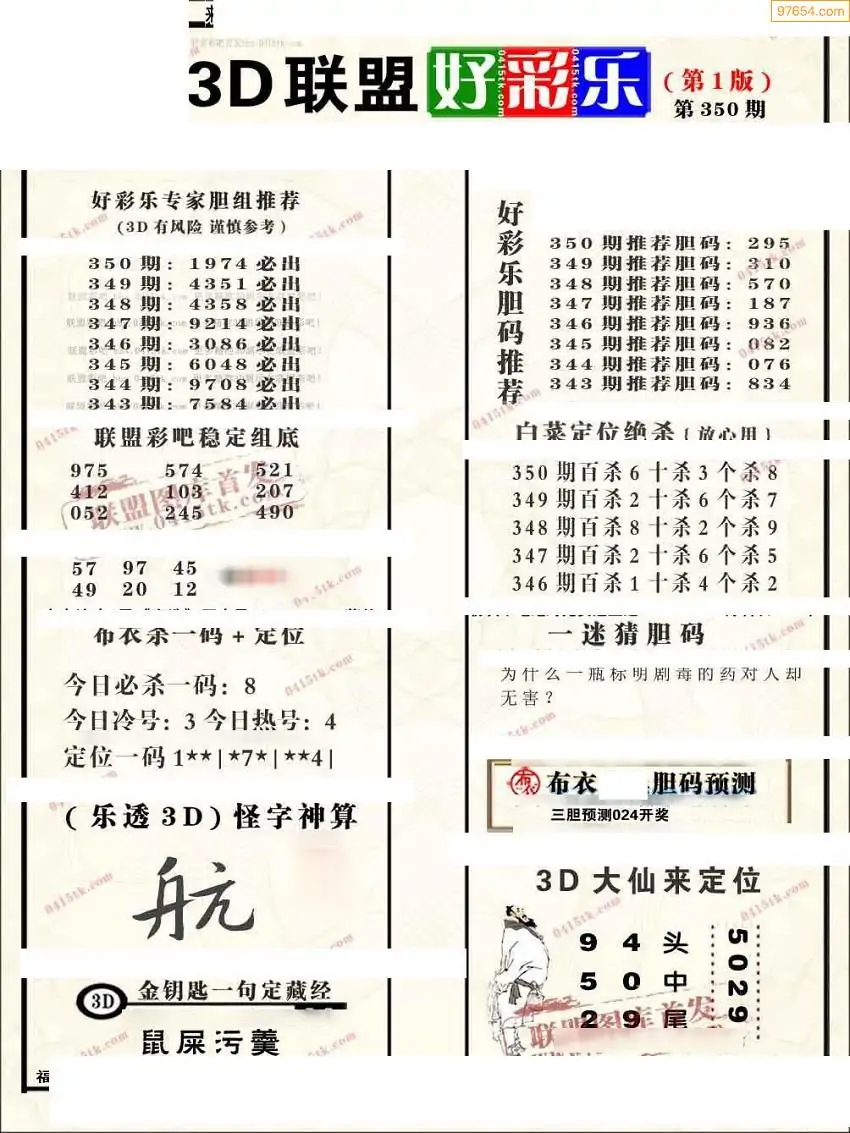 97654.com
3D联盟好彩乐(第1版)
第350期
好彩乐专家胆组推荐
(3D有风险 谨慎参考)
350期: 1974必出
349期: 4351必出
348期: 4358必出
347期: 9214必出
346期: 3086必出
345期: 6048必出
344期: 9708必出
343期: 7584必出
联盟彩吧稳定组底
975 574 521
412 103 207
052 245 490
57 97 45
49 20 12
布衣杀一码+定位
今日必杀一码: 8
今日冷号: 3 今日热号: 4
定位一码1**|*7*|**4|
(乐透3D)怪字神算
航
3D 金钥匙一句定藏经
鼠屎污羹
福
好彩乐胆码推荐
350期推荐胆码: 295
349期推荐胆码: 310
348期推荐胆码: 570
347期推荐胆码: 187
346期推荐胆码: 936
345期推荐胆码: 082
344期推荐胆码: 076
343期推荐胆码: 834
白菜定位绝杀{放心用}
350期百杀6十杀3个杀8
349期百杀2十杀6个杀7
348期百杀8十杀2个杀9
347期百杀2十杀6个杀5
346期百杀1十杀4个杀2
一迷猜胆码
为什么一瓶标明剧毒的药对人却
无害?
布衣 胆码预测
三胆预测024开奖
3D大仙来定位
9 4 头
5 0 中
2 9 尾
5029
联盟图库首发
0415tk.com